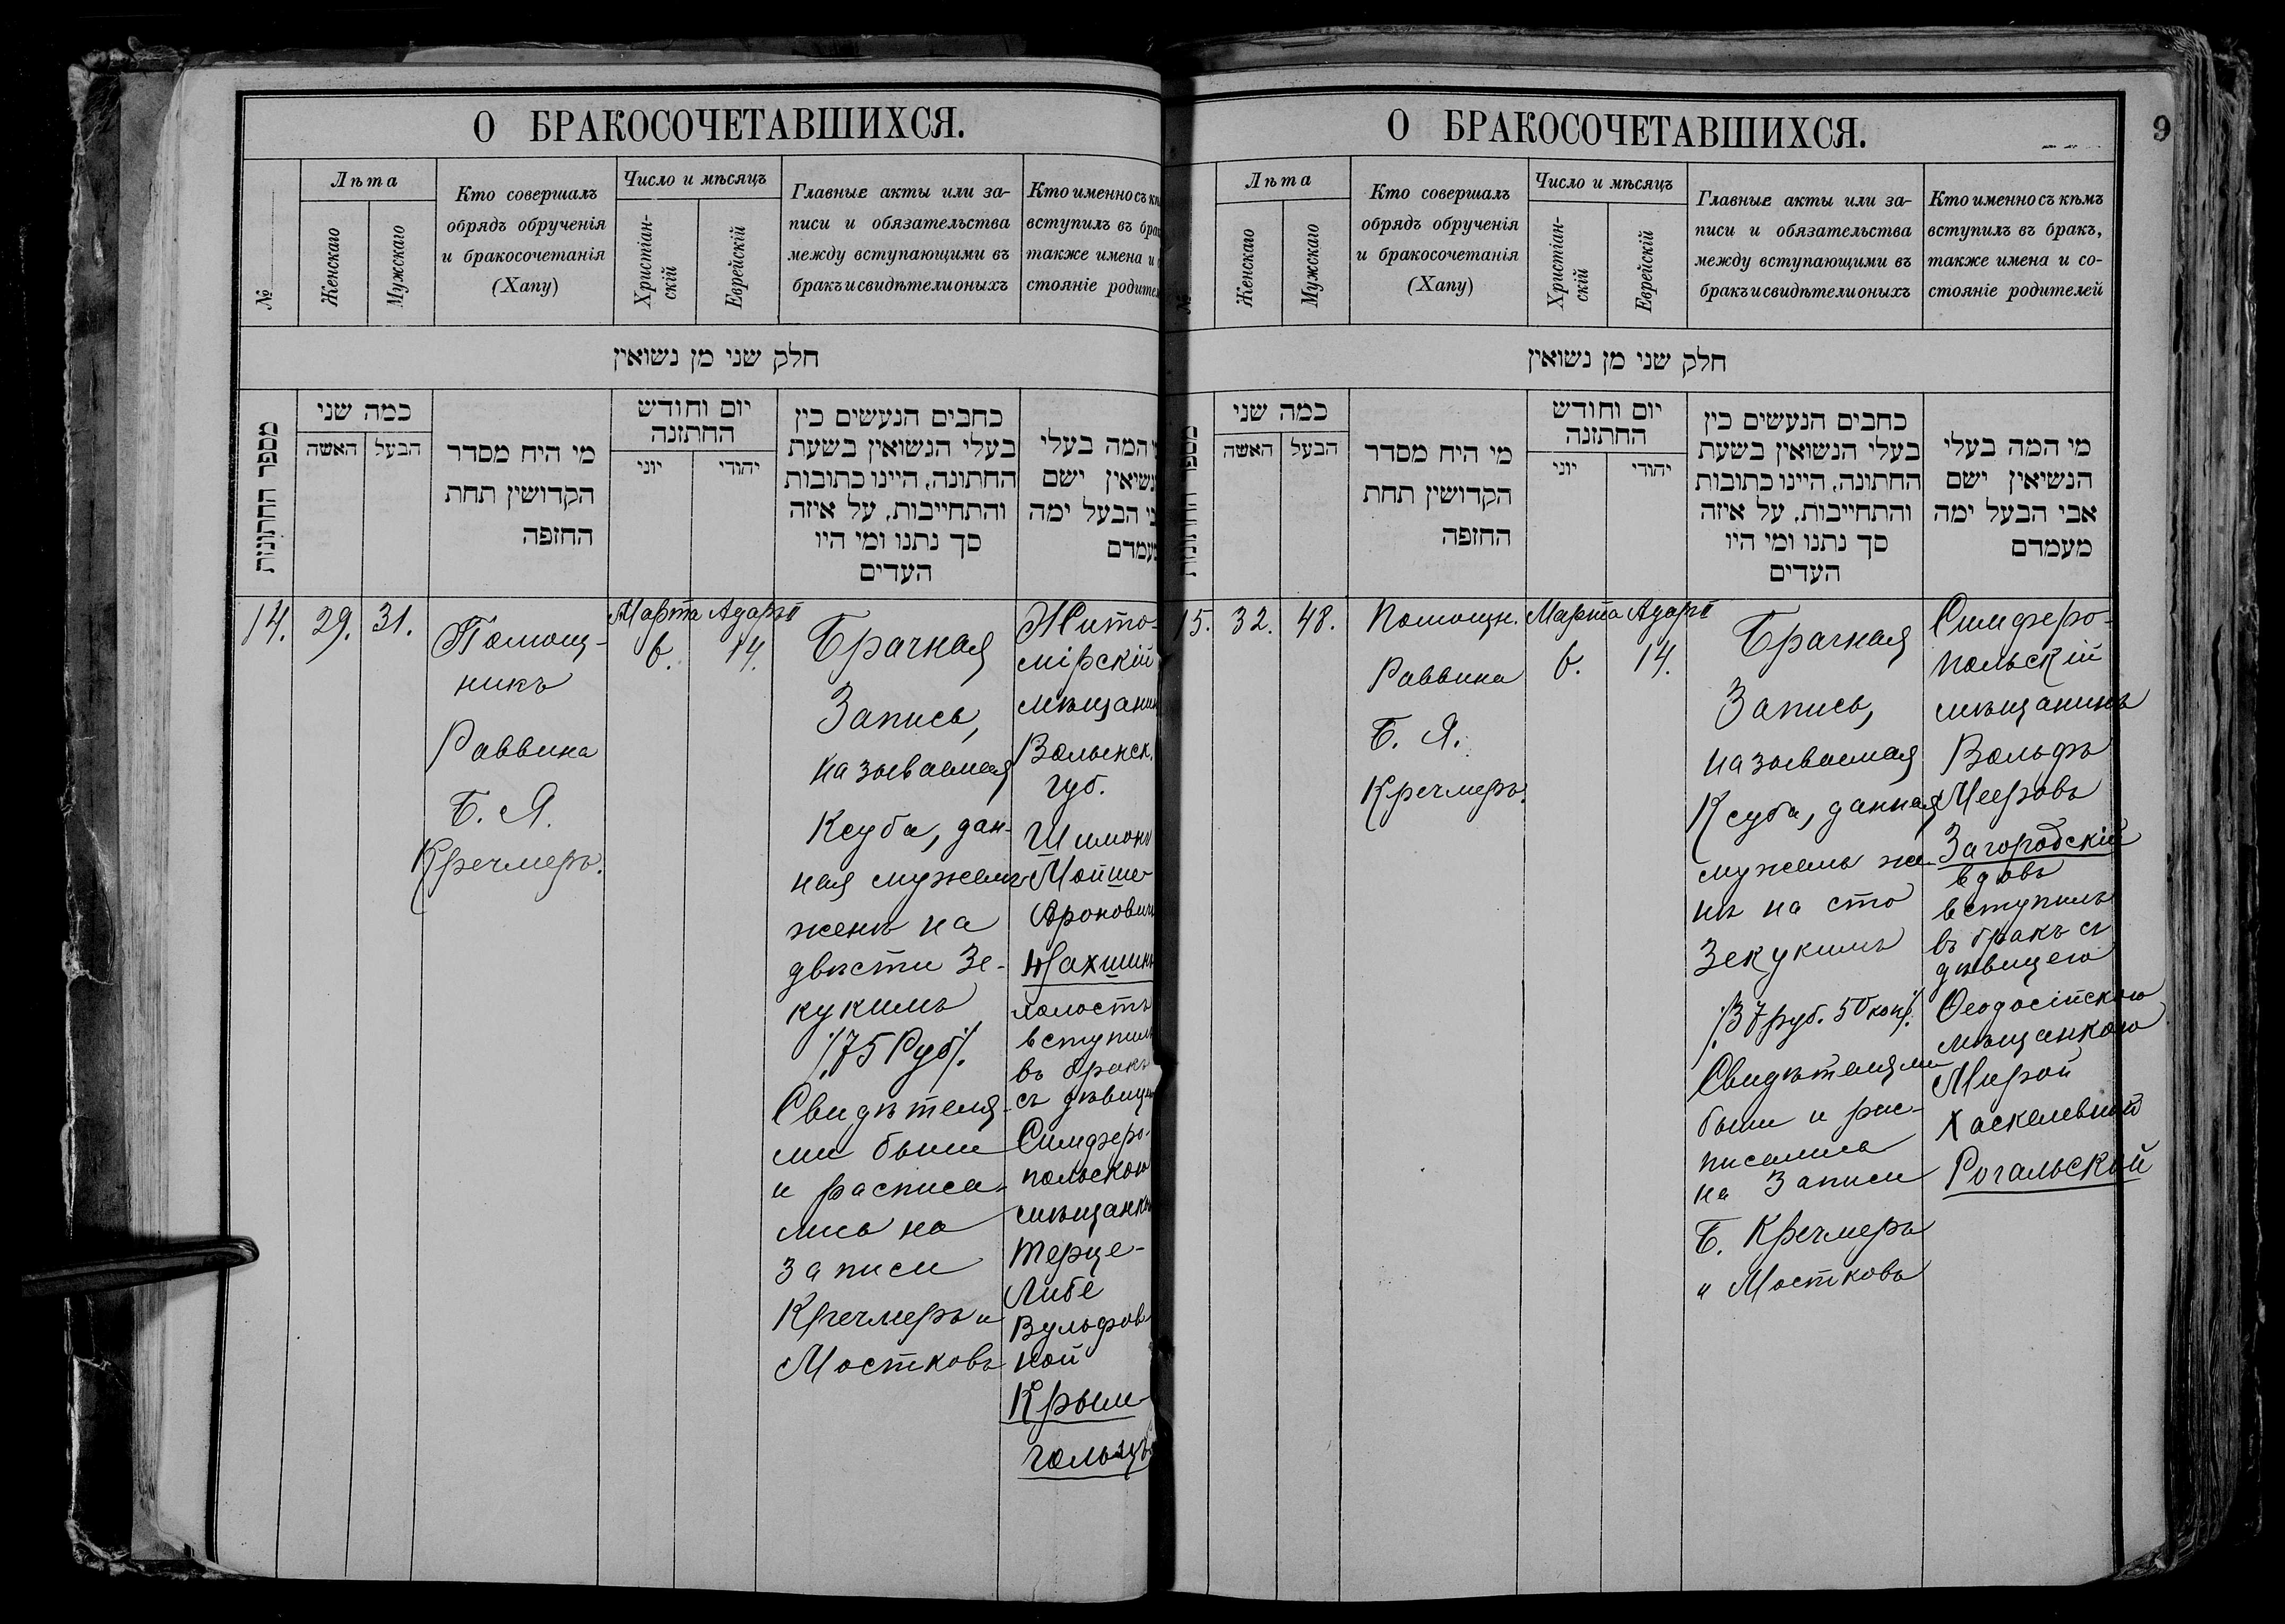 О БРАКОСОЧЕТАВШИХСЯ.
№
Лѣта
Женскаго
Мужскаго
Кто совершалъ
обрядъ обрученія
и бракосочетанія
(Хапу)
Число и мѣсяцъ
Христіан-
скій
Еврейскій
Главные акты или за-
писи и обязательства
между вступающими въ
бракъ и свидѣтели оныхъ
Кто именно съ
вступилъ въ
также имена и
стояніе
חלק שני מן נשואין
מספר החתונות
כמה שני
האשה
הבעל
מי היח מסדר
הקדושין תחת
החזפה
יום וחודש
החתזנה
יוני
יהודי
כחבים הנעשים כין
בעלי הנשואין בשעת
החתונה, היינו כתובות
והתחייבות, על איזה
סך נתנו ומי היו
העדים
המה בעלי
ישם
הבעל ימה
14.
29.
31.
Помощ-
никъ
Раввина
Б. Я.
Кречмеръ.
Марта
6.
Адаръ II
14.
Брачная
Запись,
называемая
Ксуба, дан-
ная мужемъ
женѣ на
двѣсти Зе-
кукимъ
/75 Руб/.
Свидѣтеля-
ми были
и расписа-
лись на
Записи
Кречмеръ и
Мостковъ
Жито-
мірскій
мѣщанин
Волынск.
губ.
Шимонъ
Мойше
Аронович
холостъ
вступилъ
въ бракъ
съ дѣвице
Симферо-
польскою
мѣщанкою
Терце-
Либе
Вульфов-
ной
Крым-
гольцъ
О БРАКОСОЧЕТАВШИХСЯ.
9
Лѣта
Женскаго
Мужскаго
Кто совершалъ
обрядъ обрученія
и бракосочетанія
(Хапу)
Число и мѣсяцъ
Христіан-
скій
Еврейскій
Главные акты или за-
писи и обязательства
между вступающими въ
бракъ и свидѣтели оныхъ
Кто именно съ кѣмъ
вступилъ въ бракъ,
также имена и со-
стояніе родителей
חלק שני מן נשואין
כמה שני
האשה
הבעל
מי היח מסדר
הקדושין תחת
החזפה
יום וחודש
החתזנה
יוני
יהודי
כחבים הנעשים כין
בעלי הנשואין בשעת
החתונה, היינו כתובות
והתחייבות, על איזה
סך נתנו ומי היו
העדים
מי המה בעלי
הנשיאין ישם
אבי הבעל ימה
מעמדם
15.
32.
48.
Помощн.
Раввина
Б. Я.
Кречмеръ.
Марта
6.
Адаръ II
14.
Брачная
Запись,
называемая
Ксуба, данная
мужемъ же-
нѣ на сто
Зекукимъ
/37 руб. 50 коп/.
Свидѣтелями
были и рас-
писались
на Записи
Б. Кречмеръ
и Мостковъ
Симферо-
польскій
мѣщанинъ
Вольфъ
Мееровъ
Загородскій
вдовъ
вступилъ
въ бракъ съ
дѣвицею
Ѳеодосійскою
мѣщанкою
Мирой
Хаскелевной
Рогальской